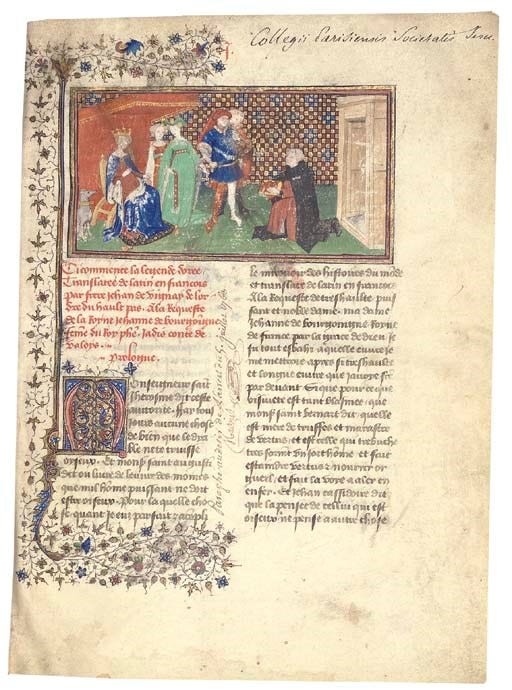 Collegii Parisiensis Societatis Jesu.
Ci commence la legende doree
translatee de latin en francois
par frere jehan de vignay de lor
dre du hault pas. A la requeste
de la royne jehanne de bourgongne
feme du roy phe. jadis conte de
valoys.
Prologue.
Monseigneur saint
iherosme dit ceste
auctorite. Fay tou
jours aucune chose
de bien que le dya
ble ne te truisse
oyseux. Et mons saint augusti
dit ou livre de leuvre des moines
que nul home puissant ne doit
estre oyseux. Pour la quelle cho
se quant je euz parfait
le mirouoir des histoires du mode
et translate de latin en francois
A la requeste de treshaulte puis
sant et noble dame. ma dame
Jehanne de bourgongne Royne
de france par la grace de dieu. Je
fu tout esbahi a quelle euvre je
me mettroye apres si treshaulte
et longue euvre que javoye fte
par devant. Si que pour ce que
oisivete est tant blasmee. que
mons saint bernart dit. quelle
est mere de truffes et marastre
de vertus. et est celle qui trebuche
tres fort et fait
estaindre vertuz nourrir or
gueil. et fait la voye a aler en
enfer. Et jehan cassidoire dit
que la pensee de cellui qui est
oyseux ne pense a autre chose